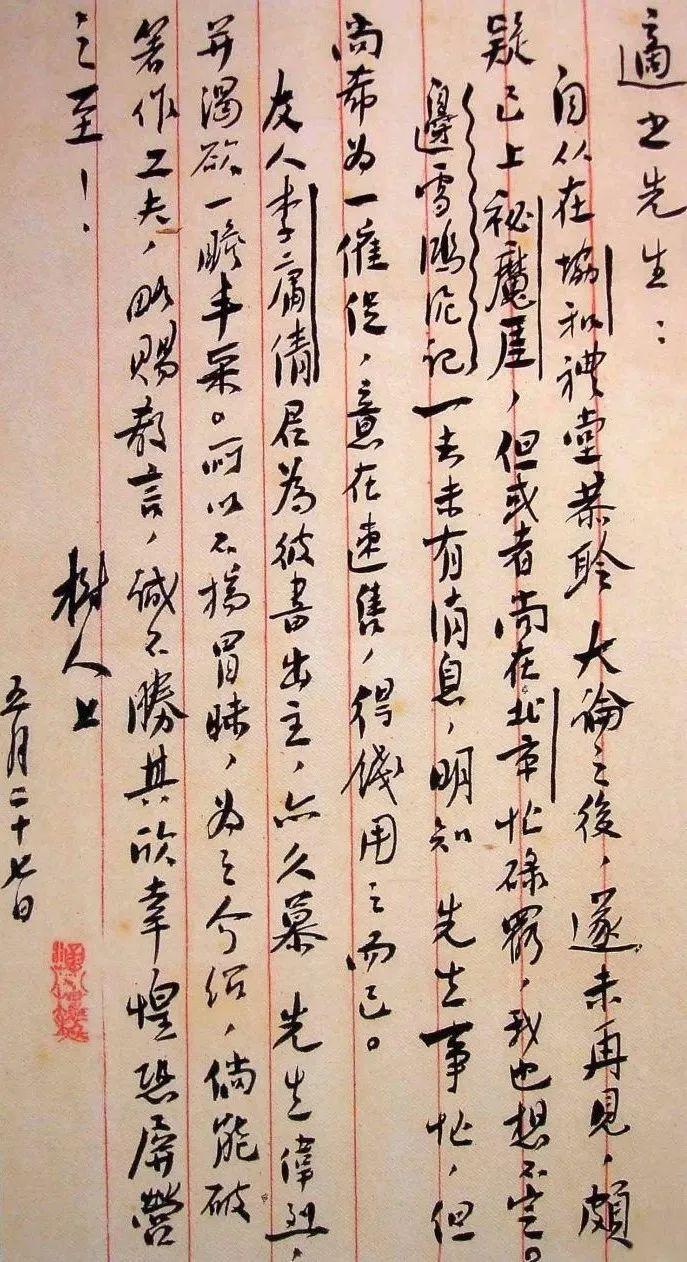 適之先生：
自从在協和禮堂恭聆大論之後，遂未再見，頗
疑已上祕魔厓，但或者尚在北京忙碌罷，我也想不定。
邊雪鴻泥記一去未有消息，明知先生事忙，但
尚希为一催促，意在速售，得錢用之而已。
友人李庸倩君為彼書出主，亦久慕先生偉烈，
并渴欲一瞻丰采。所以不揣冒昧，为之介绍，倘能破
著作工夫，略賜教言，誠不勝其欣幸惶恐屏營
之至！
樹人上
五月二十七日